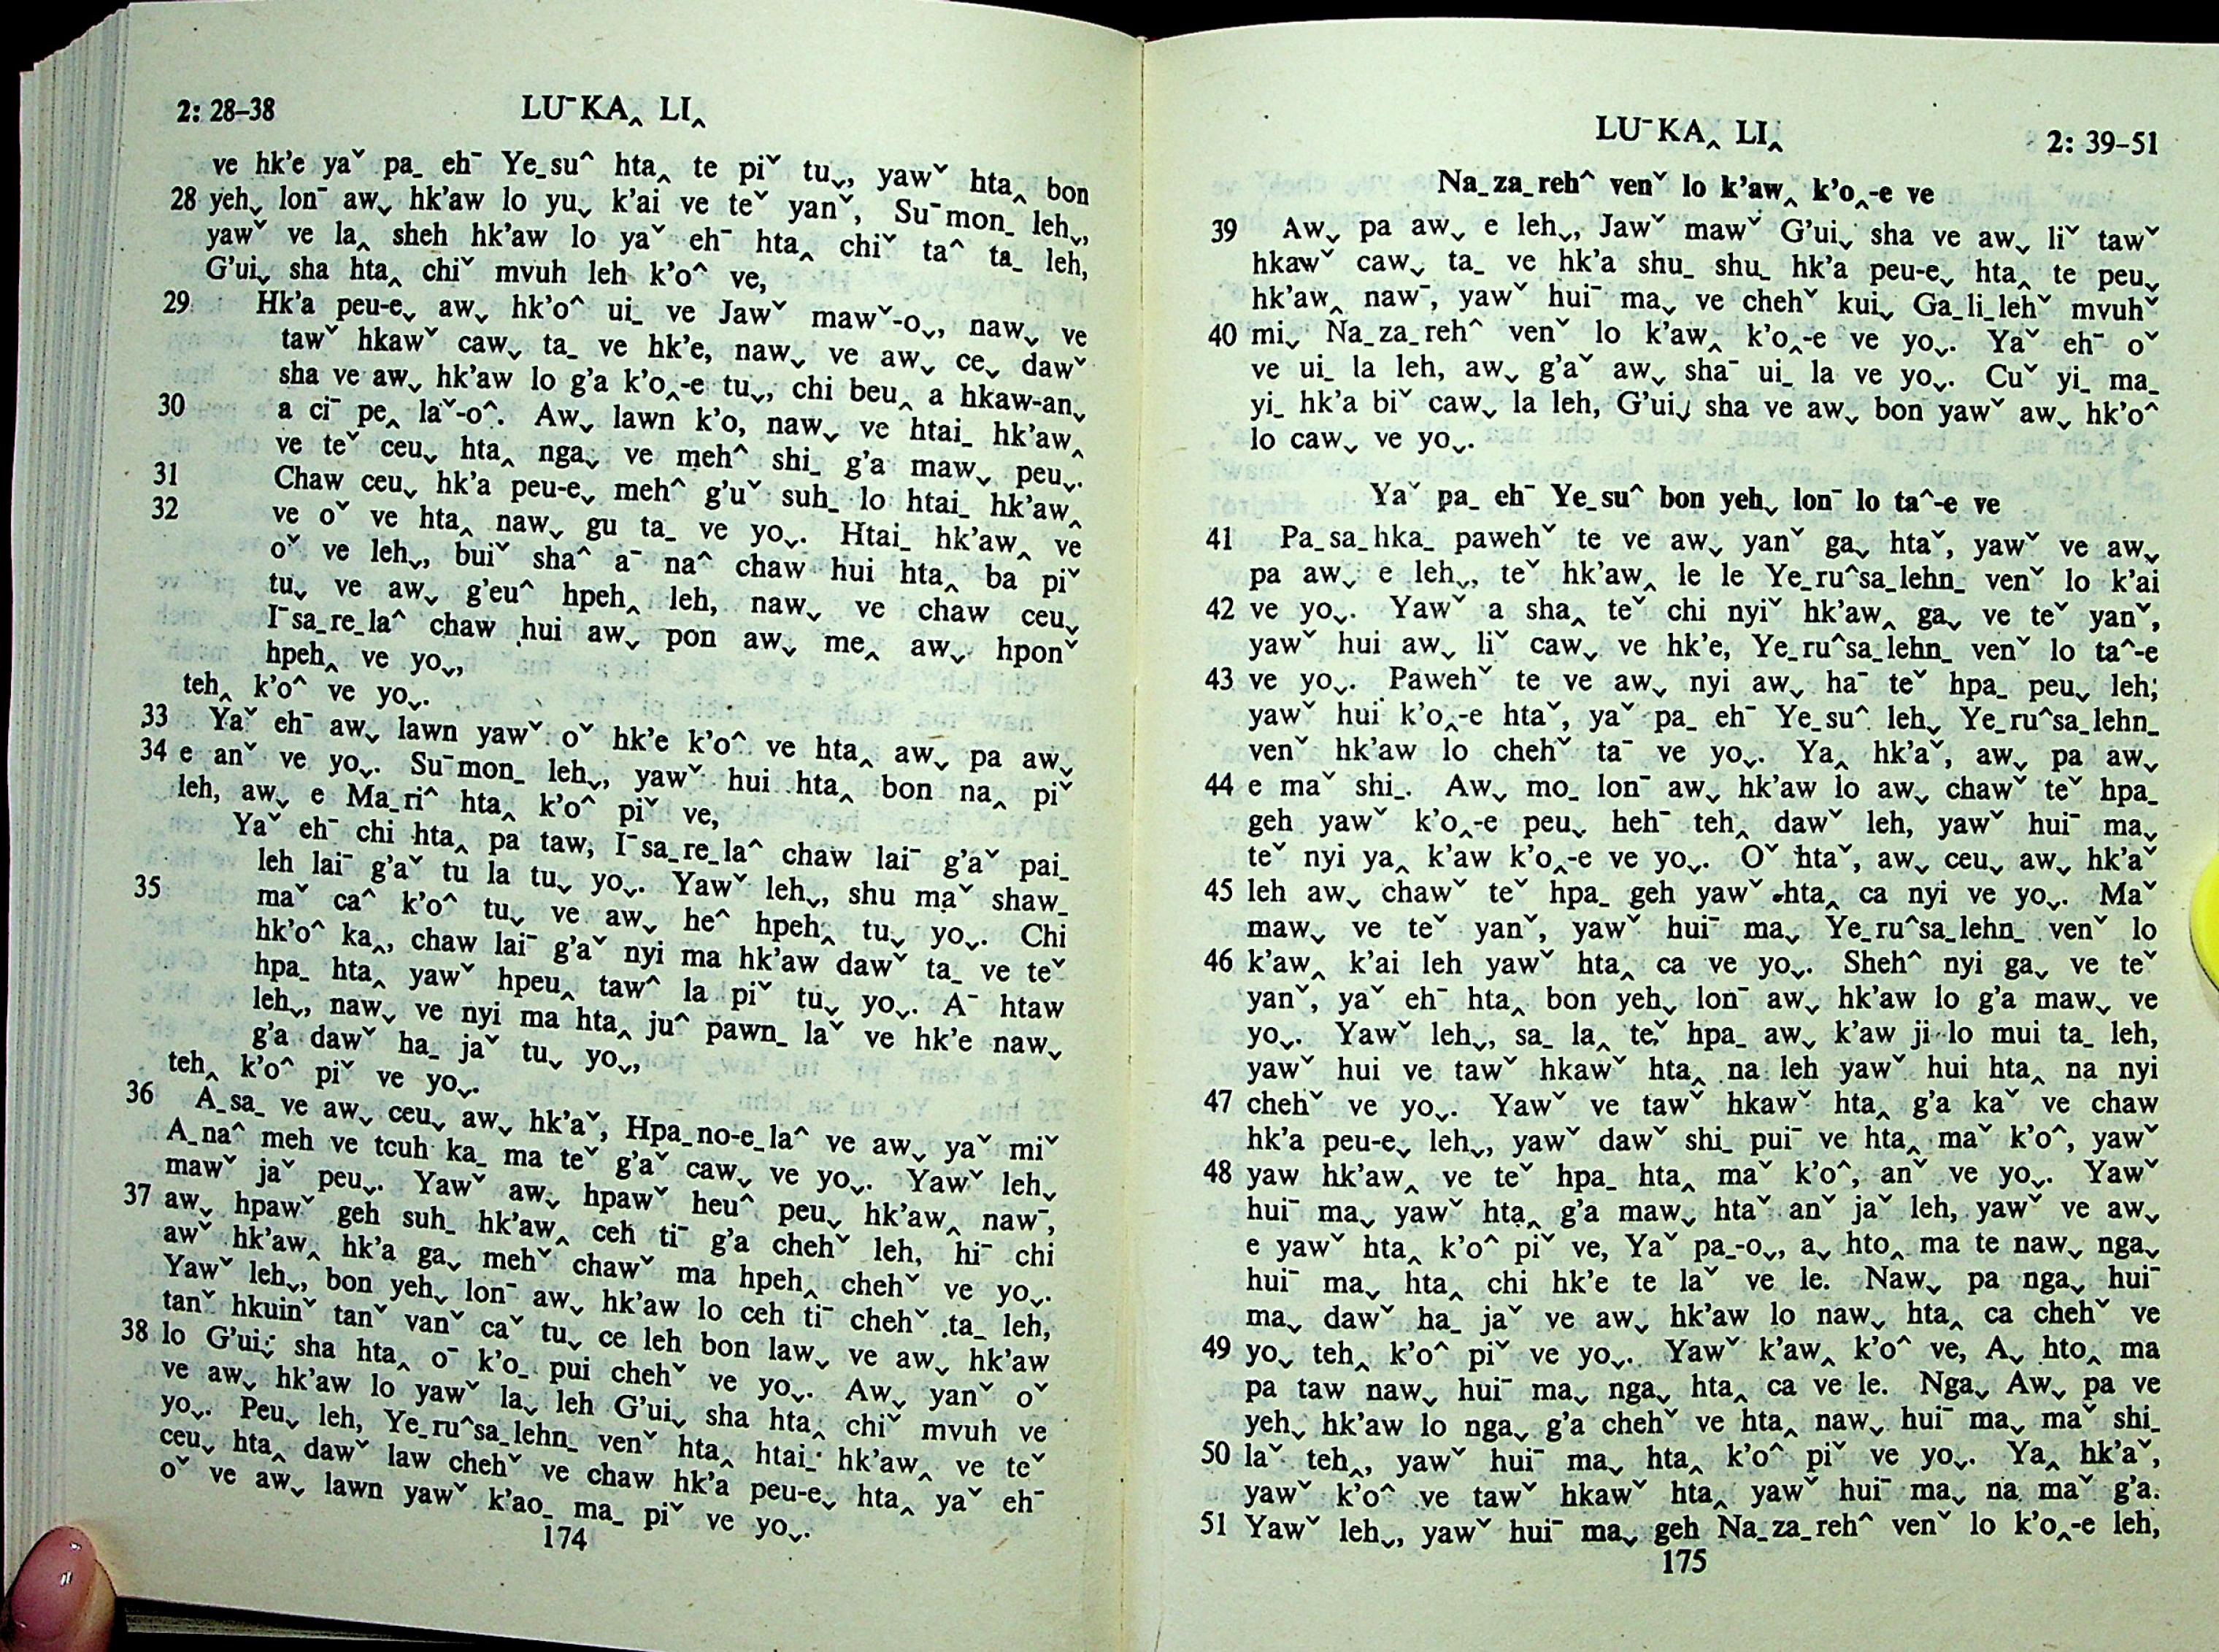 2: 28–38
LUˉKA‸ LI‸
ve hk’e yaˇ pa_ ehˉ Ye_suˆ hta‸ te piˇ tuˬ, yawˇ hta‸ bon
28 yehˬ lonˉ awˬ hk’aw lo yuˬ k’ai ve teˇ yanˇ, Suˉmon_ lehˬ,
yawˇ ve la‸ sheh hk’aw lo yaˇ ehˉ hta‸ chiˇ taˆ ta_ leh,
G’uiˬ sha hta‸ chiˇ mvuh leh k’oˆ ve,
29 Hk’a peu-eˬ awˬ hk’oˆ ui_ ve Jawˇ mawˇ-oˬ, nawˬ ve
tawˇ hkawˇ cawˬ ta_ ve hk’e, nawˬ ve awˬ ceˬ dawˇ
sha ve awˬ hk’aw lo g’a k’o‸-e tuˬ, chi beu‸ a hkaw-anˬ
30 a ciˉ pe‸ laˇ-oˆ. Awˬ lawn k’o, nawˬ ve htai_ hk’aw‸
ve teˇ ceuˬ hta‸ ngaˬ ve mehˆ shi_ g’a mawˬ peuˬ.
31 Chaw ceuˬ hk’a peu-eˬ mehˆ g’uˇ suh_ lo htai_ hk’aw‸
32 ve oˇ ve hta‸ nawˬ gu ta_ ve yoˬ. Htai_ hk’aw‸ ve
oˇ ve lehˬ, buiˇ shaˆ aˉ naˆ chaw hui hta‸ ba piˇ
tuˬ ve awˬ g’euˆ hpeh‸ leh, nawˬ ve chaw ceuˬ
Iˉsa_re_laˆ chaw hui awˬ pon awˬ me‸ awˬ hponˇ
hpeh‸ ve yoˬ,
teh‸ k’oˆ ve yoˬ.
33 Yaˇ ehˉ awˬ lawn yawˇ oˇ hk’e k’oˆ ve hta‸ awˬ pa awˬ
34 e anˇ ve yoˬ. Suˉmon_ lehˬ, yawˇ hui hta‸ bon na‸ piˇ
leh, awˬ e Ma_riˆ hta‸ k’oˆ piˇ ve,
Yaˇ ehˉ chi hta‸ pa taw, Iˉsa_re_laˆ chaw laiˉ g’aˇ pai_
leh laiˉ g’aˇ tu la tuˬ yoˬ. Yawˇ lehˬ, shu maˇ shaw_
35 maˇ caˆ k’oˆ tuˬ ve awˬ heˆ hpeh‸ tuˬ yoˬ. Chi
hk’oˆ ka‸, chaw laiˉ g’aˇ nyi ma hk’aw dawˇ ta_ ve teˇ
hpa_ hta‸ yawˇ hpeu‸ tawˆ la piˇ tuˬ yoˬ. Aˉ htaw
lehˬ, nawˬ ve nyi ma hta‸ juˆ pawn_ laˇ ve hk’e nawˬ
g’a dawˇ ha_ jaˇ tuˬ yoˬ,
teh‸ k’oˆ piˇ ve yoˬ.
36 A_sa_ ve awˬ ceuˬ awˬ hk’aˇ, Hpa_no-e_laˆ ve awˬ yaˇ miˇ
A_naˆ meh ve tcuh ka_ ma teˇ g’aˇ cawˬ ve yoˬ. Yawˇ lehˬ
mawˇ jaˇ peuˬ. Yawˇ awˬ hpawˇ heuˆ peuˬ hk’aw‸ nawˉ,
37 awˬ hpawˇ geh suh_ hk’aw‸ ceh tiˉ g’a chehˇ leh, hiˉ chi
awˇ hk’aw‸ hk’a gaˬ mehˇ chawˇ ma hpeh‸ chehˇ ve yoˬ.
Yawˇ lehˬ, bon yehˬ lonˉ awˬ hk’aw lo ceh tiˉ chehˇ ta_ leh,
tanˇ hkuinˇ tanˇ vanˇ caˇ tuˬ ce leh bon lawˬ ve awˬ hk’aw
38 lo G’uiˬ sha hta‸ oˉ k’o_ pui chehˇ ve yoˬ. Awˬ yanˇ oˇ
ve awˬ hk’aw lo yawˇ laˬ leh G’uiˬ sha hta‸ chiˇ mvuh ve
yoˬ. Peuˬ leh, Ye_ruˆsa_lehn_ venˇ hta‸ htai_ hk’aw‸ ve teˇ
ceuˬ hta‸ dawˇ law chehˇ ve chaw hk’a peu-eˬ hta‸ yaˇ ehˉ
oˇ ve awˬ lawn yawˇ k’ao_ ma_ piˇ ve yoˬ.
174
LUˉKA‸ LI‸
2: 39–51
Na_za_rehˆ venˇ lo k’aw‸ k’o‸-e ve
39 Awˬ pa awˬ e lehˬ, Jawˇ mawˇ G’uiˬ sha ve awˬ liˇ tawˇ
hkawˇ cawˬ ta_ ve hk’a shu_ shu_ hk’a peu-eˬ hta‸ te peuˬ
hk’aw‸ nawˉ, yawˇ huiˉ maˬ ve chehˇ kuiˬ Ga_li_lehˇ mvuhˇ
40 miˬ Na_za_rehˆ venˇ lo k’aw‸ k’o‸-e ve yoˬ. Yaˇ ehˉ oˇ
ve ui_ la leh, awˬ g’aˇ awˬ shaˉ ui_ la ve yoˬ. Cuˇ yi_ ma_
yi_ hk’a biˇ cawˬ la leh, G’uiˬ sha ve awˬ bon yawˇ awˬ hk’oˆ
lo cawˬ ve yoˬ.
Yaˇ pa_ ehˉ Ye_suˆ bon yehˬ lonˉ lo taˆ-e ve
41 Pa_sa_hka_ pawehˇ te ve awˬ yanˇ gaˬ htaˇ, yawˇ ve awˬ
pa awˬ e lehˬ, teˇ hk’aw‸ le le Ye_ruˆsa_lehn_ venˇ lo k’ai
42 ve yoˬ. Yawˇ a sha‸ teˇ chi nyiˇ hk’aw‸ gaˬ ve teˇ yanˇ,
yawˇ hui awˬ liˇ cawˬ ve hk’e, Ye_ruˆsa_lehn_ venˇ lo taˆ-e
43 ve yoˬ. Pawehˇ te ve awˬ nyi awˬ haˉ teˇ hpa_ peuˬ leh;
yawˇ hui k’o‸-e htaˇ, yaˇ pa_ ehˉ Ye_suˆ lehˬ Ye_ruˆsa_lehn_
venˇ hk’aw lo chehˇ taˉ ve yoˬ. Ya‸ hk’aˇ, awˬ pa awˬ
44 e maˇ shi_. Awˬ mo_ lonˉ awˬ hk’aw lo awˬ chawˇ teˇ hpa_
geh yawˇ k’o‸-e peuˬ hehˉ teh‸ dawˇ leh, yawˇ huiˉ maˬ
teˇ nyi ya‸ k’aw k’o‸-e ve yoˬ. Oˇ htaˇ, awˬ ceuˬ awˬ hk’aˇ
45 leh awˬ chawˇ teˇ hpa_ geh yawˇ hta‸ ca nyi ve yoˬ. Maˇ
mawˬ ve teˇ yanˇ, yawˇ huiˉ maˬ Ye_ruˆsa_lehn_ venˇ lo
46 k’aw‸ k’ai leh yawˇ hta‸ ca ve yoˬ. Shehˆ nyi gaˬ ve teˇ
yanˇ, yaˇ ehˉ hta‸ bon yehˬ lonˉ awˬ hk’aw lo g’a mawˬ ve
yoˬ. Yawˇ lehˬ, sa_ la‸ teˇ hpa_ awˬ k’aw ji lo mui ta_ leh,
yawˇ hui ve tawˇ hkawˇ hta‸ na leh yawˇ hui hta‸ na nyi
47 chehˇ ve yoˬ. Yawˇ ve tawˇ hkawˇ hta‸ g’a kaˇ ve chaw
hk’a peu-eˬ lehˬ, yawˇ dawˇ shi_ puiˉ ve hta‸ maˇ k’oˆ, yawˇ
48 yaw hk’aw‸ ve teˇ hpa_ hta‸ maˇ k’oˆ, anˇ ve yoˬ. Yawˇ
huiˉ maˬ yawˇ hta‸ g’a mawˬ htaˇ anˇ jaˇ leh, yawˇ ve awˬ
e yawˇ hta‸ k’oˆ piˇ ve, Yaˇ pa_-oˬ, aˬ hto‸ ma te nawˬ ngaˬ
huiˉ maˬ hta‸ chi hk’e te laˇ ve le. Nawˬ pa ngaˬ huiˉ
maˬ dawˇ ha_ jaˇ ve awˬ hk’aw lo nawˬ hta‸ ca chehˇ ve
49 yoˬ teh‸ k’oˆ piˇ ve yoˬ. Yawˇ k’aw‸ k’oˆ ve, Aˬ hto‸ ma
pa taw nawˬ huiˉ maˬ ngaˬ hta‸ ca ve le. Ngaˬ Awˬ pa ve
yehˬ hk’aw lo ngaˬ g’a chehˇ ve hta‸ nawˬ huiˉ maˬ maˇ shi_
50 laˇ teh‸, yawˇ huiˉ maˬ hta‸ k’oˆ piˇ ve yoˬ. Ya‸ hk’aˇ,
yawˇ k’oˆ ve tawˇ hkawˇ hta‸ yawˇ huiˉ maˬ na maˇ g’a.
51 Yawˇ lehˬ, yawˇ huiˉ maˬ geh Na_za_rehˆ venˇ lo k’o‸-e leh,
175